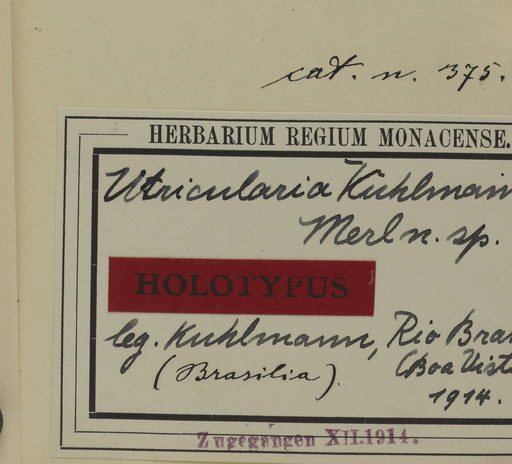 cat. n. 375.
HERBARIUM REGIUM MONACENSE.
Utricularia Kuhlmann
Merl n. sp.
HOLOTYPUS
leg. Kuhlmann, Rio Bra
(Brasilia). (Boa Vist
1914.
Zugegangen XII.1914.